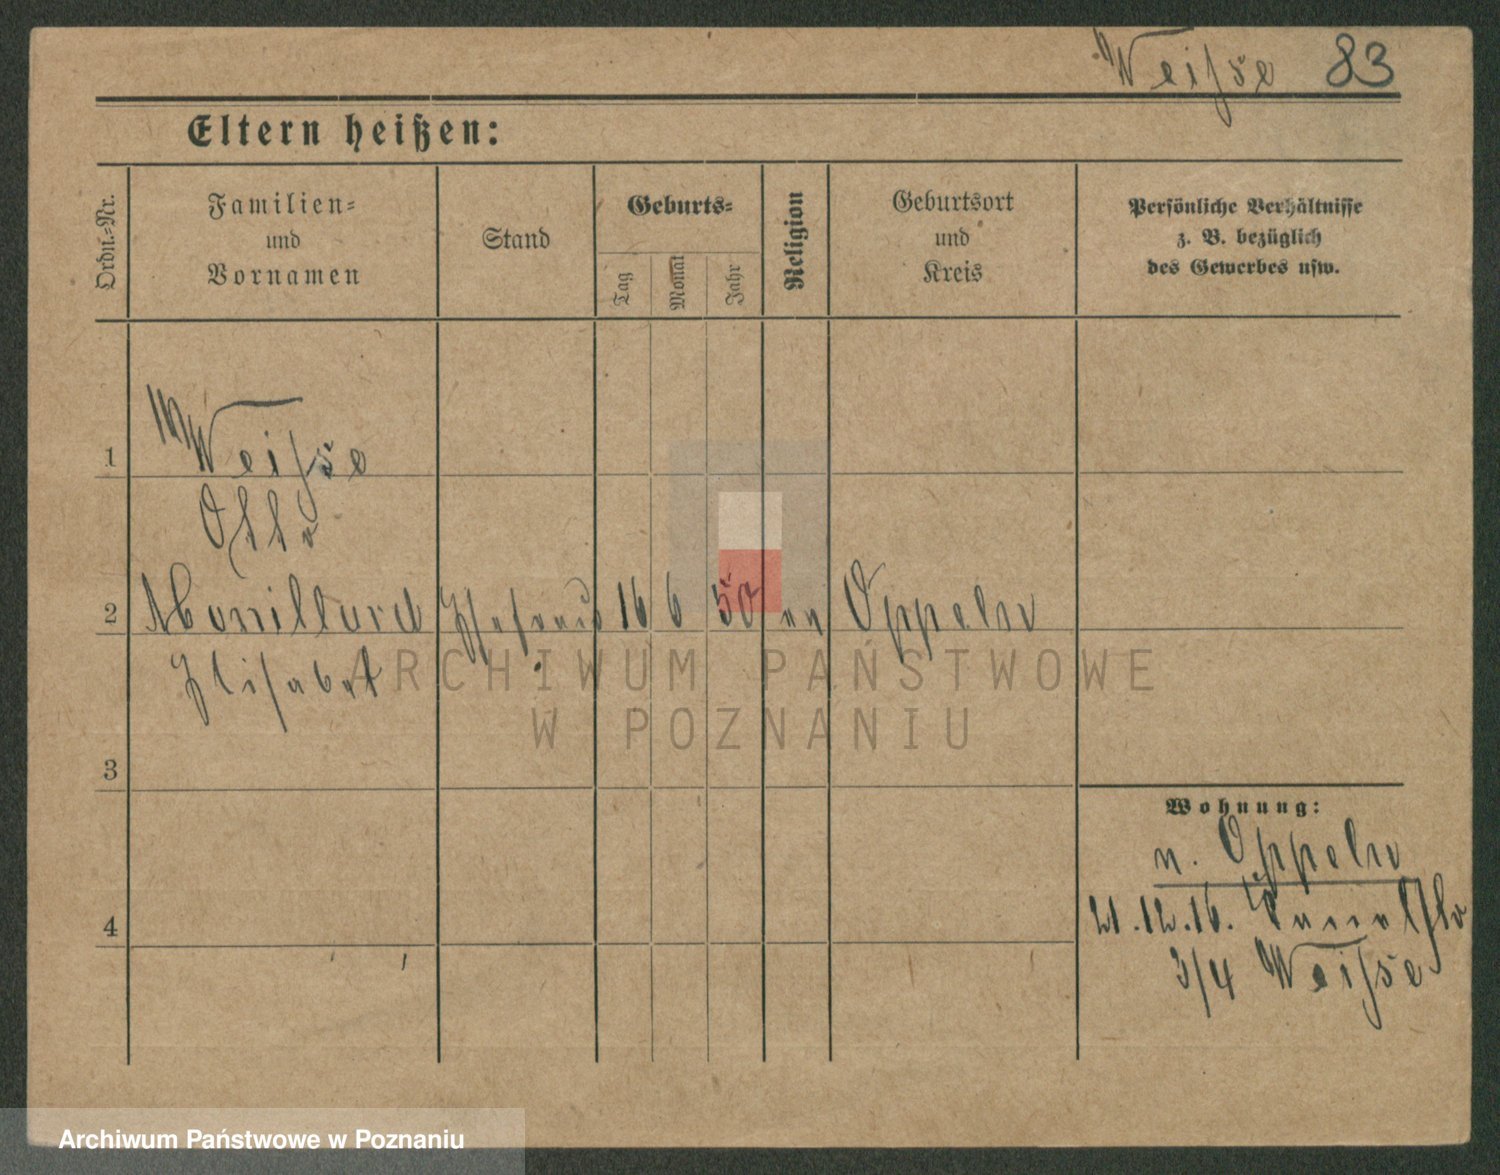 Weiſse 83
Eltern heißen:
Ordn.-Nr.
Familien-
und
Vornamen
Stand
Geburts-
Tag
Monat
Jahr
Religion
Geburtsort
und
Kreis
Persönliche Verhältnisse
z. B. bezüglich
des Gewerbes usw.
1 Weiſse
Otto
2 16 6 50 ev Oppeln
Elisabet
3
Wohnung:
n. Oppeln
21.12.16.
4
3/4 Weiſse
ARCHIWUM PAŃSTWOWE
W POZNANIU
Archiwum Państwowe w Poznaniu